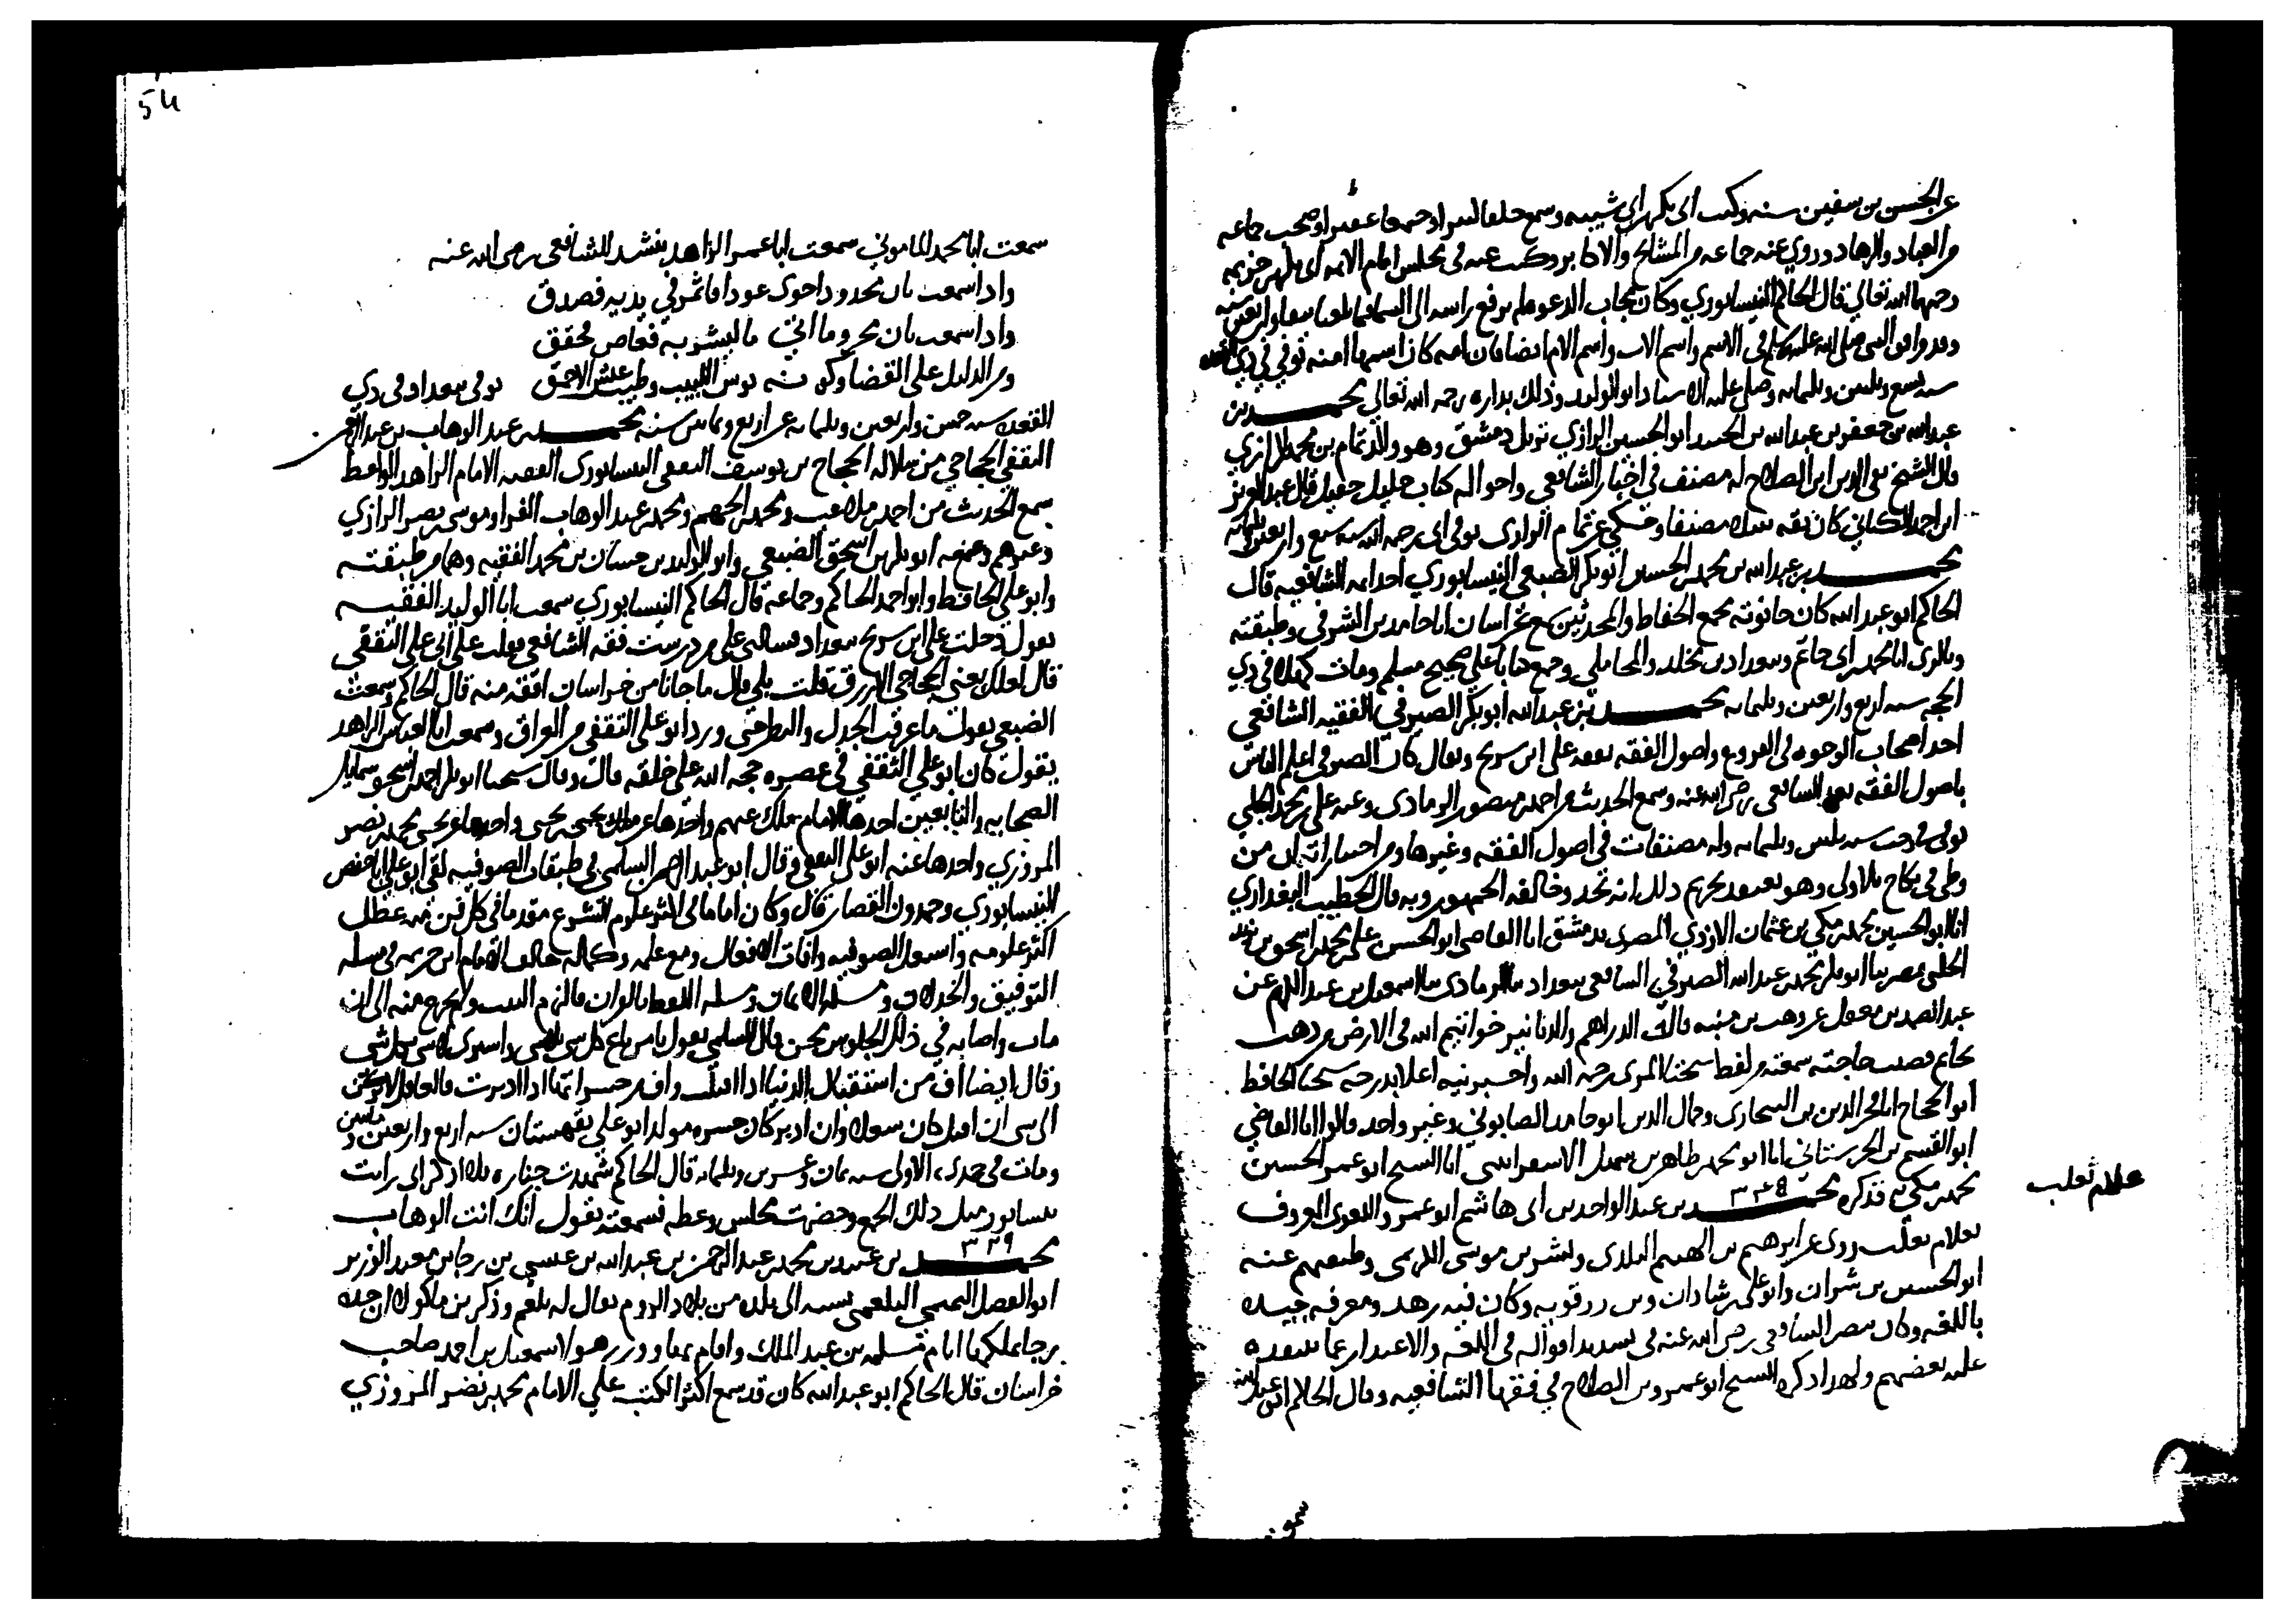 عن الحسن بن سفين سنه وكتب ابي بكر بن ابي شيبه وسمع
من العباد والزهاد وروي عنه جماعه من المشايخ والاكابر وكتب عنه في مجلس امام الايمه ابي بكر بن خزيمه
رحمهما الله تعالي قال الحاكم النيسابوري وكان مجاب الدعوه لم يرفع راسه الي السما
وقد وافق النبي صلى الله عليه وسلم في الاسم واسم الاب واسم الام ايضا فان امه كان اسمها امنه توفي في ذي القعده
سنه تسع وثلثين وثلثمايه وصلي عليه الاستاد ابو الوليد وذلك بداره رحمه الله تعالي محمد بن
عبد الله بن جعفر بن عبد الله بن الجنيد ابو الحسين الرازي نزيل دمشق وهو والد تمام بن محمد الرازي
قال الشيخ تقي الدين ابن الصلاح له مصنف في اخبار الشافعي واحواله كتاب جليل حفيل قال عبد العزيز
ابن احمد الكتاني كان ثقه نبيلا مصنفا وحكي عن تمام الرازي توفي ابي رحمه الله سنه سبع واربعين وثلثمايه
محمد بن عبد الله بن محمد بن الحسين ابو بكر الضبعي النيسابوري احد ايمه الشافعيه قال
الحاكم ابو عبد الله كان حانوته مجمع الحفاظ والمحدثين سمع بخراسان ابا حامد بن الشرقي وطبقته
وبالري ابا محمد بن ابي حاتم وببغداد بن مخلد والمحاملي وجمع كتابا علي صحيح مسلم ومات كهلا في ذي
الحجه سنه اربع واربعين وثلثمايه محمد بن عبد الله ابو بكر الصيرفي الفقيه الشافعي
احد اصحاب الوجوه في الفروع واصول الفقه تفقه على ابن سريج ويقال كان الصيرفي اعلم الناس
باصول الفقه بعد الشافعي رضي الله عنه وسمع الحديث من احمد بن منصور الرمادي وعنه علي بن محمد الحلبي
توفي في رجب سنه ثلثين وثلثمايه وله مصنفات في اصول الفقه وغيرها ومن اختياراته ان من
وطي في نكاح بلا ولي وهو يعتقد تحريم ذلك انه يحد وخالفه الجمهور وبه قال الخطيب البغدادي
انا ابو الحسين محمد بن مكي بن عثمان الازدي المصري بدمشق انا القاضي ابو الحسن علي بن محمد بن اسحق بن يزيد
الحلبي بمصر ثنا ابو بكر محمد بن عبد الله الصيرفي الشافعي ببغداد ثنا الرمادي ثنا اسمعيل بن عبد الكريم عن
عبد الصمد بن معقل عن وهب بن منبه قال الدراهم والدنانير خواتيم الله في الارض من ذهب
بخاتم قضيت حاجته سمعته من لفظ شيخنا المزي رحمه الله واخبرنيه اعلا بدرجه شيخنا الحافظ
ابو الحجاج انا فخر الدين بن البخاري وجمال الدين ابو حامد الصابوني وغير واحد قالوا انا القاضي
ابو القسم بن الحرستاني انا ابو محمد طاهر بن سهل الاسفراييني انا الشيخ ابو عمر الحسين
محمد بن مكي فذكره ٣٣٨ محمد بن عبد الواحد بن ابي هاشم ابو عمر اللغوي المعروف
بغلام ثعلب روي عن ابرهيم بن الهيثم البلدي وبشر بن موسي الاسدي وطبقتهم عنه
ابو الحسين بن بشران وابو علي بن شاذان وبن رزقويه وكان فيه زهد ومعرفه جيده
باللغه وكان ينصر الشافعي رضي الله عنه في تسديد اقواله في اللغه والاعتذار عما ينتقده
عليه بعضهم ولهذا ذكره الشيخ ابو عمرو بن الصلاح في فقها الشافعيه وقال الحاكم ابو عبد الله
غلام ثعلب
54
سمعت ابا محمد الماموني سمعت ابا عمر الزاهد ينشد للشافعي رضي الله عنه
واذا سمعت بان مجدودا حوى عودا فاثمر في يديه فصدق
واذا سمعت بان محروما اتي ما ليشربه فغاص فحقق
ومن الدليل على القضا وكونه بوس اللبيب وطيب عيش الاحمق توفي ببغداد في ذي
القعده سنه خمس واربعين وثلثمايه عن اربع وثمانين سنه محمد بن عبد الوهاب بن عبد الرحمن
الثقفي الحجاجي من سلاله الحجاج بن يوسف الثقفي النيسابوري الفقيه الامام الزاهد الواعظ
سمع الحديث من احمد بن ملاعب ومحمد بن الجهم ومحمد بن عبد الوهاب الفرا وموسي بن نصر الرازي
وغيرهم وعنه ابو بكر بن اسحق الضبعي وابو الوليد بن حسان بن محمد الفقيه وهما من طبقته
وابو علي الحافظ وابو احمد الحاكم وجماعه قال الحاكم النيسابوري سمعت ابا الوليد الفقيه
يقول دخلت على ابن سريج ببغداد فسالني على من درست فقه الشافعي فقلت علي ابي علي الثقفي
قال لعلك يعني الحجاجي الازرق قلت بلي قال ما جانا من خراسان افقه منه قال الحاكم وسمعت
الضبعي يقول ما عرفت الجدل والنظر حتى ورد ابو علي الثقفي من العراق وسمعت ابا العباس الزاهد
يقول كان ابو علي الثقفي في عصره حجه الله على خلقه قال وقال شيخنا ابو بكر احمد بن اسحق شمايل
الصحابه والتابعين اخذها الامام ملك عنهم واخذها عن ملك يحيى بن يحيى واخذها عن يحيى محمد بن نصر
المروزي واخذها عنه ابو علي الثقفي وقال ابو عبد الرحمن السلمي في طبقات الصوفيه لقي ابو علي ابا حفص
النيسابوري وحمدون القصار قال وكان اماما في اكثر علوم الشرع مقدما في كل فن منه عطل
اكثر علومه واشتغل بالصوفيه وافات الافعال ومع علمه وكماله خالف الامام ابن خزيمه في مسله
التوفيق والخذلان ومسله الايمان ومسله اللفظ بالقران فالزم البيت ولم يخرج منه الى ان
مات واصابه في ذلك الجلوس محن قال السلمي يقول يا من باع كل شي بلا شي واشترى لا شي بكل شي
وقال ايضا اف من اشتغال الدنيا اذا اقبلت واف من حسراتها اذا ادبرت والعاقل لا يركن
الى شي ان اقبل كان شغلا وان ادبر كان حسره مولد ابو علي بقهستان سنه اربع واربعين ومايتين
ومات في جمدى الاولى سنه ثمان وعشرين وثلثمايه قال الحاكم شهدت جنازه فلا اذكر اني رايت
بنيسابور مثل ذلك الجمع وحضرت مجلس وعظه فسمعته يقول انك انت الوهاب
٣٣٩ محمد بن عبيد بن محمد بن عبد الرحمن بن عبد الله بن عيسي بن رجا بن معبد الوزير
ابو الفضل التميمي البلعمي نسبه الى بلده من بلاد الروم يقال له بلعم وذكر بن ماكولا ان جده
رجا ملكها ايام مسلمه بن عبد الملك واقام بها ووزر هو لاسمعيل بن احمد صاحب
خراسان قال الحاكم ابو عبد الله كان قد سمع اكثر الكتب علي الامام محمد بن نصر المروزي